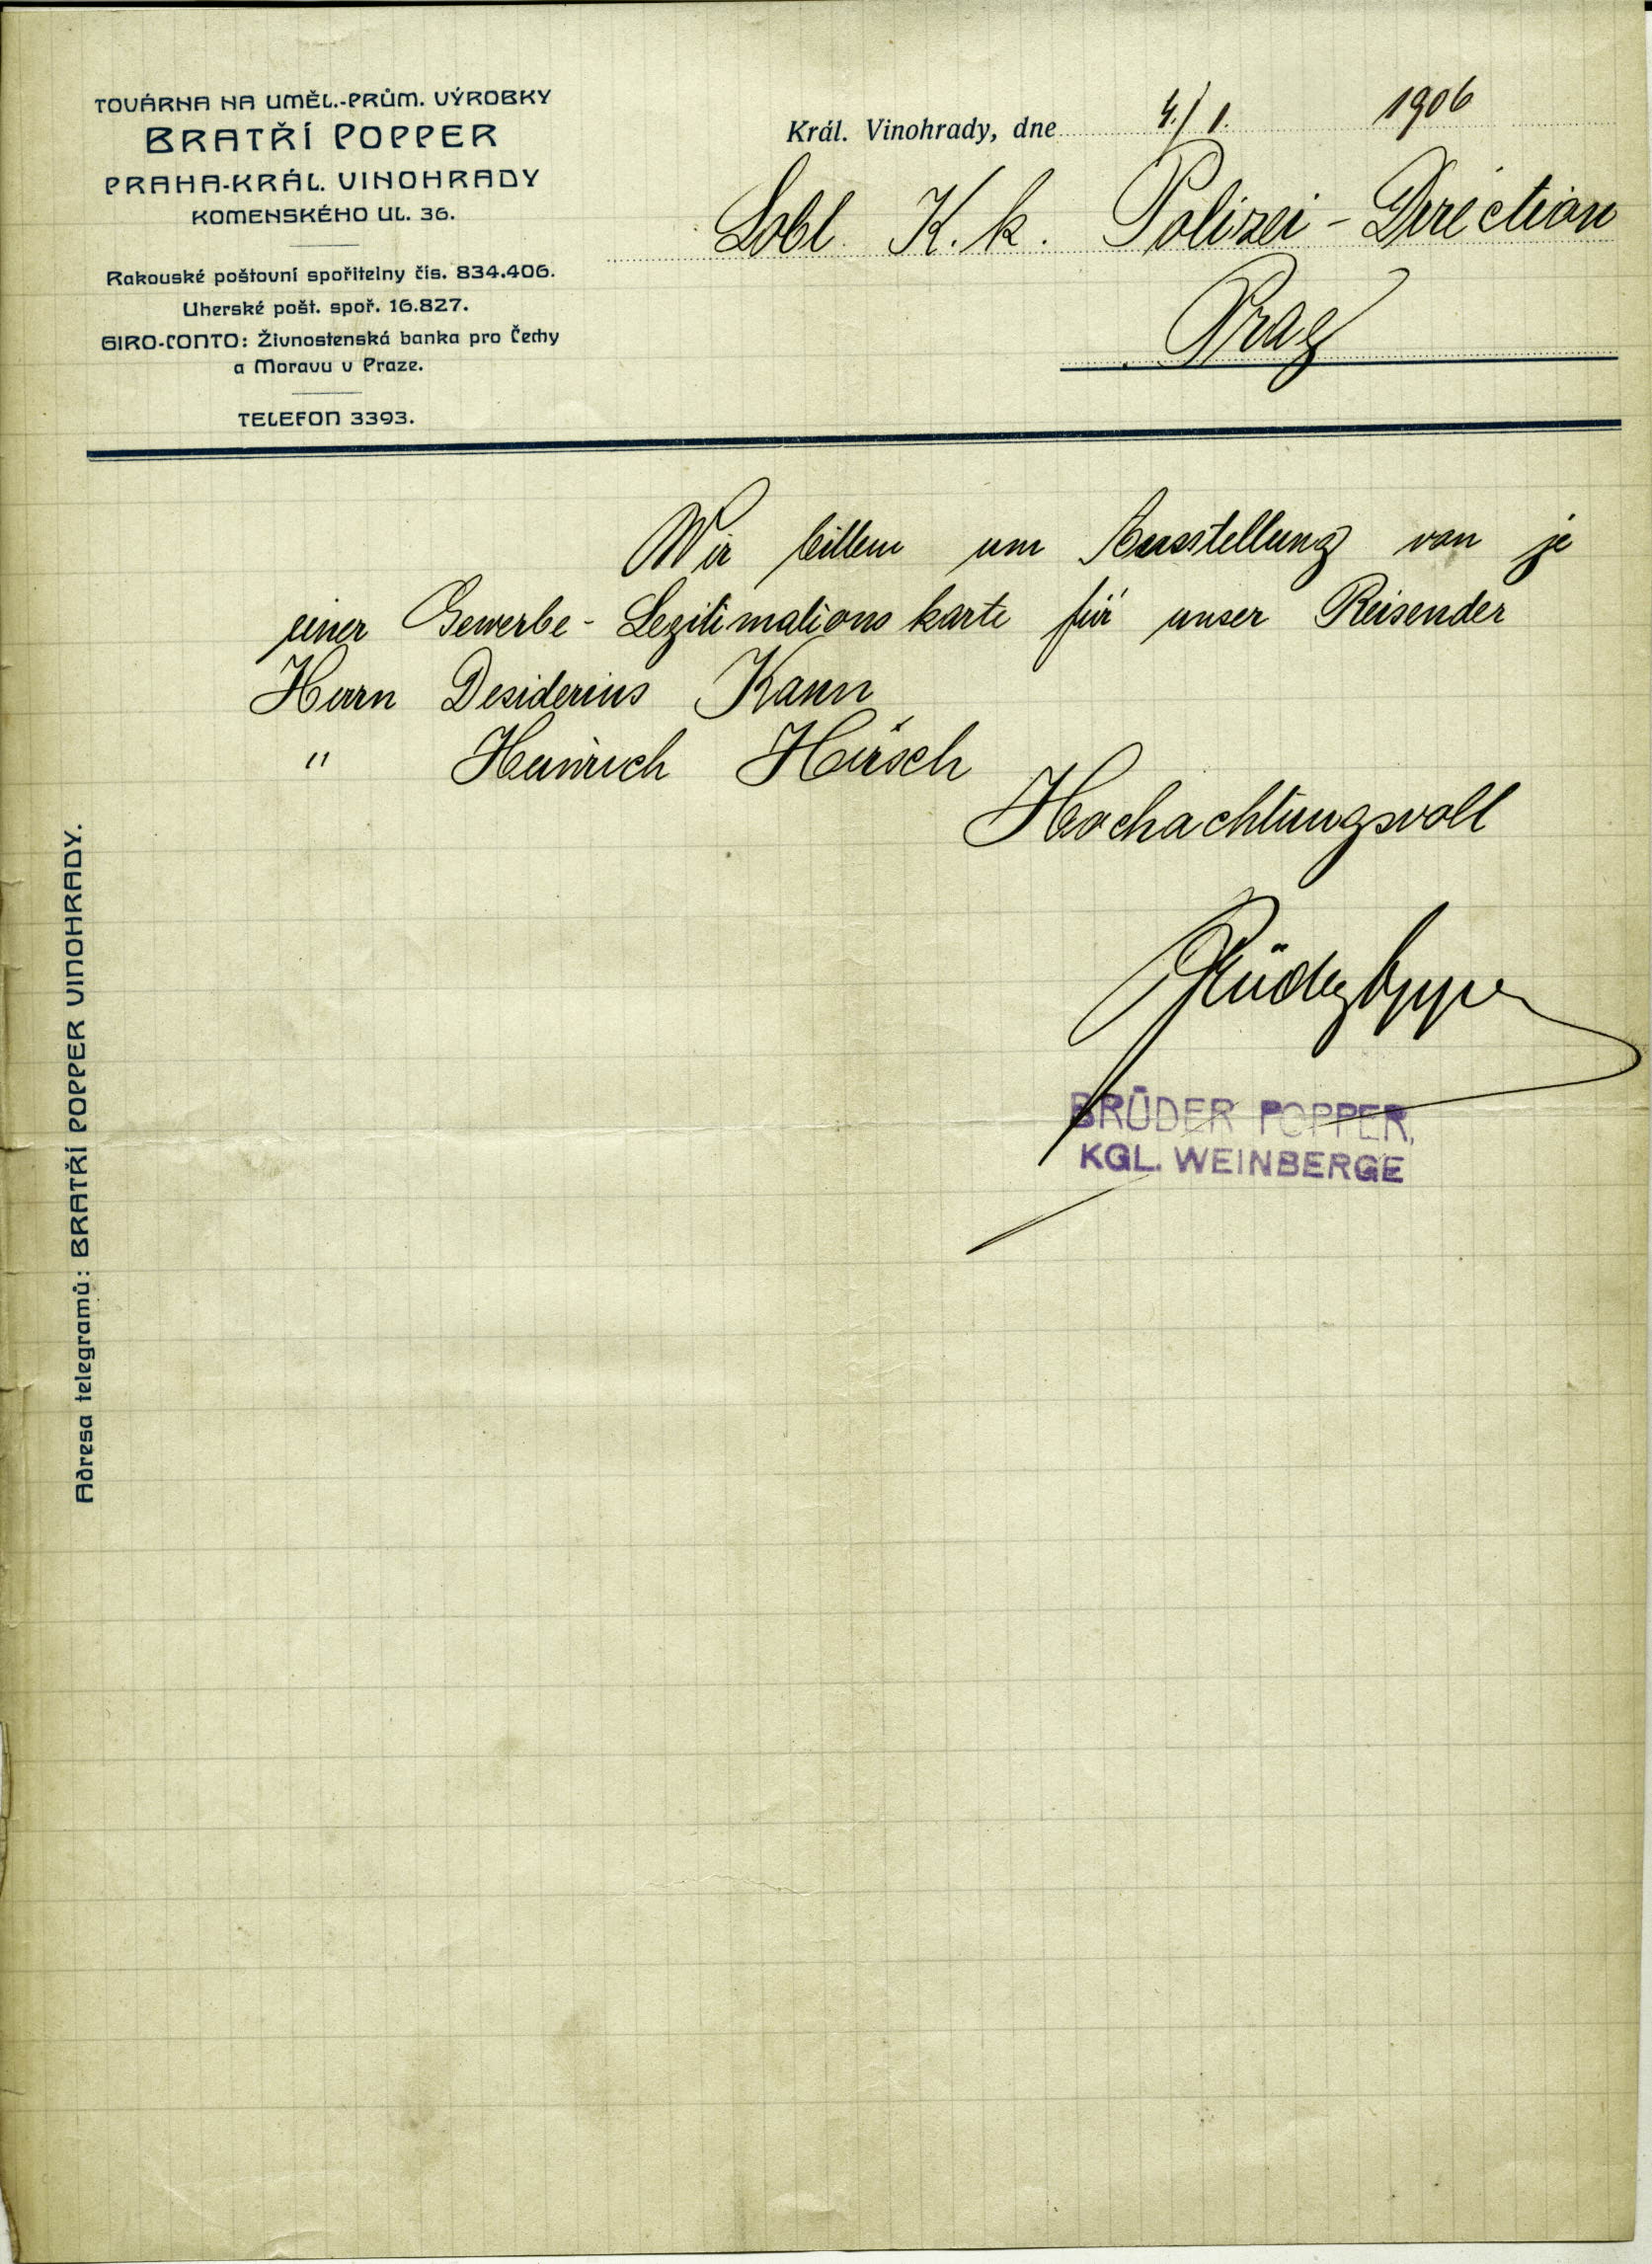 TOVÁRNA NA UMĚL.-PRŮM. VÝROBKY
BRATŘÍ POPPER
PRAHA-KRÁL. VINOHRADY
KOMENSKÉHO UL. 36.
Rakouské poštovní spořitelny čís. 834.406.
Uherské pošt. spoř. 16.827.
GIRO-CONTO: Živnostenská banka pro Čechy
a Moravu v Praze.
TELEFON 3393.
Král. Vinohrady, dne 4./1. 1906
Löbl. K. k. Polizei-Direction
Prag
Wir bitten um Ausstellung von je
einer Gewerbe-Legitimationskarte für unser Reisender
Herrn Desiderius Kann
" Heinrich Hirsch
Hochachtungsvoll
Brüder Popper
BRÜDER POPPER,
KGL. WEINBERGE
Adresa telegramů: BRATŘÍ POPPER VINOHRADY.